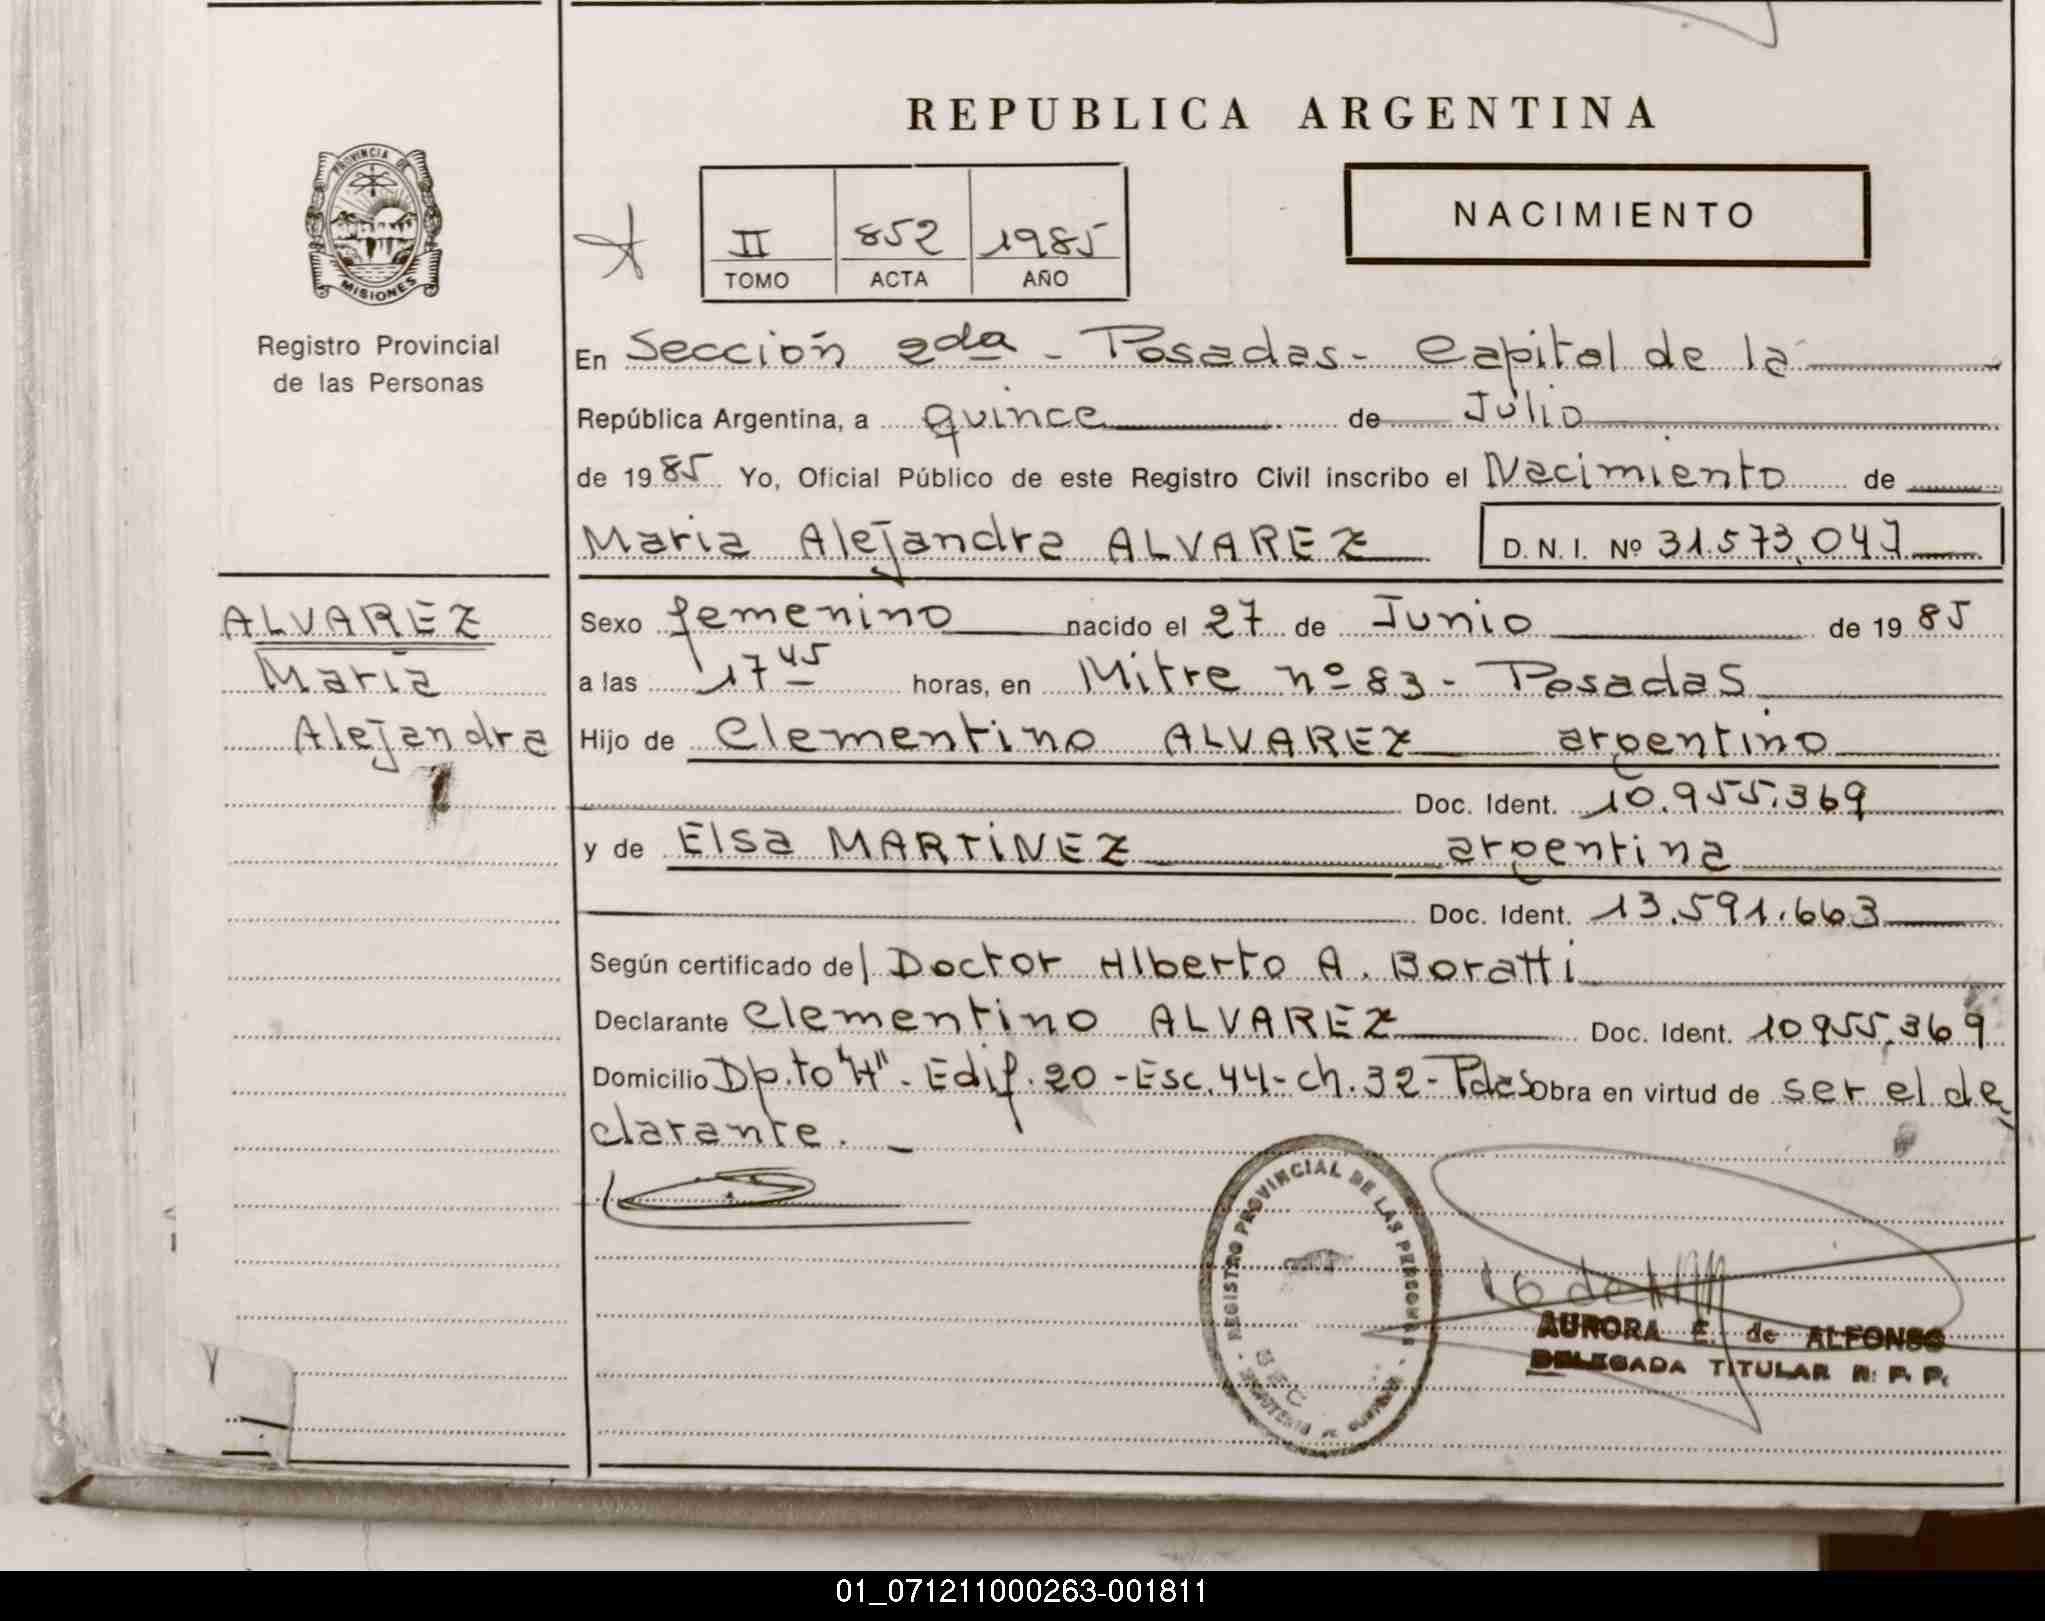 REPUBLICA ARGENTINA
PROVINCIA DE
MISIONES
Registro Provincial
de las Personas
II 852 1985
TOMO ACTA AÑO
NACIMIENTO
En Sección 2da - Posadas - Capital de la
República Argentina, a quince de Julio
de 1985 Yo, Oficial Público de este Registro Civil inscribo el Nacimiento de
Maria Alejandra ALVAREZ D.N.I. Nº 31.573.047
ALVAREZ
Maria
Alejandra
Sexo femenino nacido el 27 de Junio de 1985
a las 17 45 horas, en Mitre nº 83 - Posadas
Hijo de Clementino ALVAREZ argentino
Doc. Ident. 10.955.369
y de Elsa MARTINEZ argentina
Doc. Ident. 13.591.663
Según certificado del Doctor Alberto A. Boratti
Declarante Clementino ALVAREZ Doc. Ident. 10955.369
Domicilio Dpto "H" - Edif. 20 - Esc. 44 - Ch. 32 - Pdas Obra en virtud de ser el de
clarante.
REGISTRO PROVINCIAL DE LAS PERSONAS
AURORA E. de ALFONSO
DELEGADA TITULAR R. P. P.
01_071211000263-001811